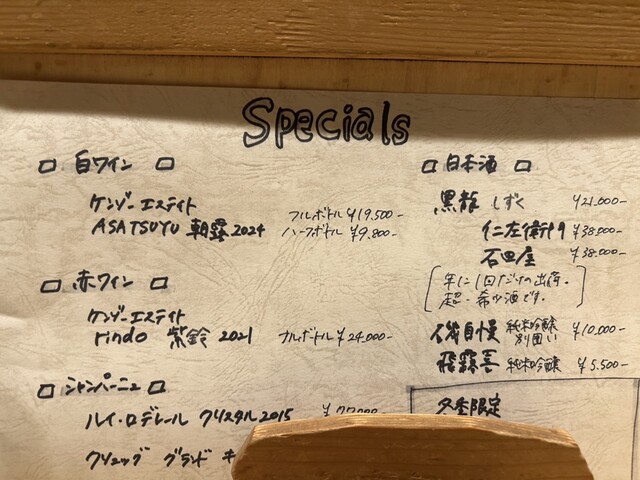 Specials
□ 白ワイン □
ケンゾーエステイト
ASATSUYU 朝露 2024 フルボトル ¥19,500-
ハーフボトル ¥9,800-
□ 赤ワイン □
ケンゾーエステイト
rindo 紫鈴 2021 フルボトル ¥24,000-
□ シャンパーニュ □
ルイ・ロデレール クリスタル 2015
クリュッグ グランド キ
□ 日本酒 □
黒龍 しずく ¥21,000-
仁左衛門 ¥38,000-
石田屋 ¥38,000-
年に1回だけの出荷。
超・希少酒です。
磯自慢 純米吟醸 別囲い ¥10,000-
飛露喜 純米吟醸 ¥5,500-
冬季限定